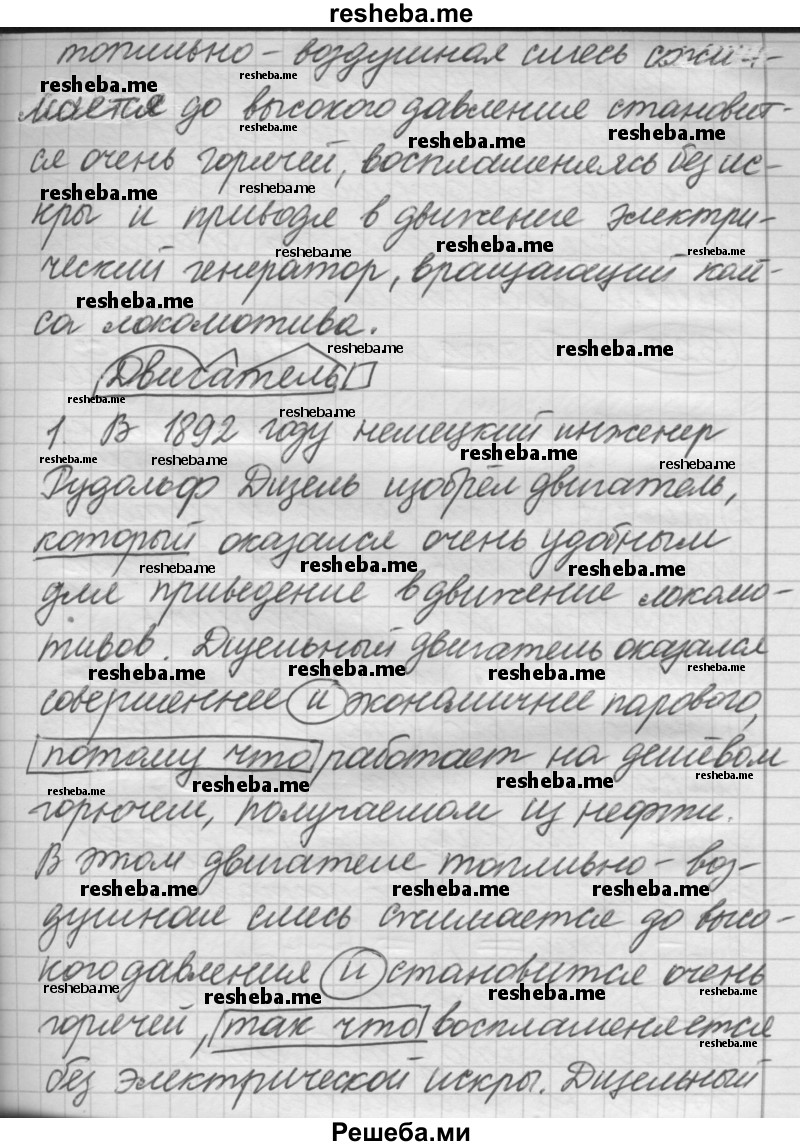 resheba.me
топливно-воздушная смесь сжи-
мается до высокого давления становит-
ся очень горячей, воспламеняясь без ис-
кры и приводя в движение электри-
ческий генератор, вращающий кол-
са локомотива.
Двигатель
1. В 1892 году немецкий инженер
Рудольф Дизель изобрёл двигатель,
который оказался очень удобным
для приведение в движение локомо-
тивов. Дизельный двигатель оказался
совершеннее и экономичнее парового,
потому что работает на дешёвом
горючем, получаемом из нефти.
В этом двигателе топливно-воз-
душная смесь сжимается до высо-
кого давления и становится очень
горячей, так что воспламеняется
без электрической искры. Дизельный
Решеба.ми